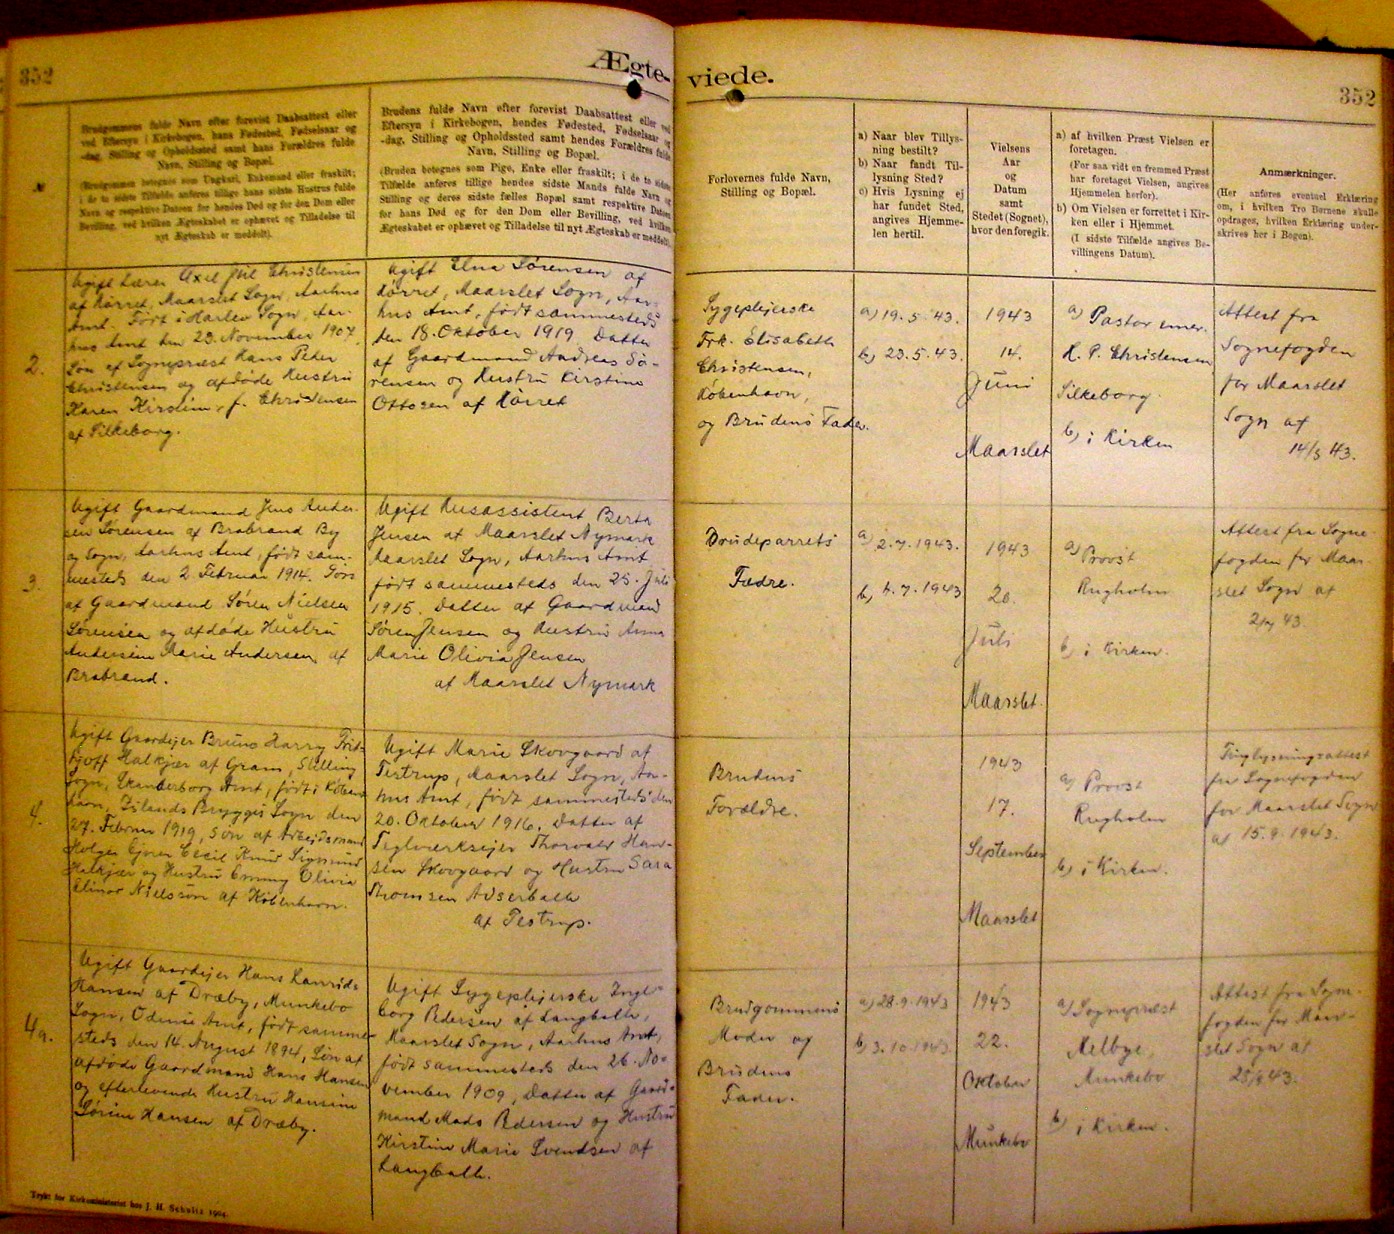 352
Ægte-
viede.
352
Brudgommens fulde Navn efter forevist Daabsattest eller
ved Eftersyn i Kirkebogen, hans Fødested, Fødselsaar og
-dag, Stilling og Opholdssted samt hans Forældres fulde
Navn, Stilling og Bopæl.
(Brudgommen betegnes som Ungkarl, Enkemand eller fraskilt;
i de to sidste Tilfælde anføres tillige hans sidste Hustrus fulde
Navn og respektive Datoen for hendes Død og for den Dom eller
Bevilling, ved hvilken Ægteskabet er ophævet og Tilladelse til
nyt Ægteskab er meddelt).
Brudens fulde Navn efter forevist Daabsattest eller ved
Eftersyn i Kirkebogen, hendes Fødested, Fødselsaar og
-dag, Stilling og Opholdssted samt hendes Forældres fulde
Navn, Stilling og Bopæl.
(Bruden betegnes som Pige, Enke eller fraskilt; i de to sidste
Tilfælde anføres tillige hendes sidste Mands fulde Navn og
Stilling og deres sidste fælles Bopæl samt respektive Datoen
for hans Død og for den Dom eller Bevilling, ved hvilken
Ægteskabet er ophævet og Tilladelse til nyt Ægteskab er meddelt).
Forlovernes fulde Navn,
Stilling og Bopæl.
a) Naar blev Tillys-
ning bestilt?
b) Naar fandt Til-
lysning Sted?
c) Hvis Lysning ej
har fundet Sted,
angives Hjemme-
len hertil.
Vielsens
Aar
og
Datum
samt
Stedet (Sognet),
hvor den foregik.
a) af hvilken Præst Vielsen er
foretagen.
(For saa vidt en fremmed Præst
har foretaget Vielsen, angives
Hjemmelen herfor).
b) Om Vielsen er forrettet i Kir-
ken eller i Hjemmet.
(I sidste Tilfælde angives Be-
villingens Datum).
Anmærkninger.
(Her anføres eventuel Erklæring
om, i hvilken Tro Børnene skulle
opdrages, hvilken Erklæring under-
skrives her i Bogen).
2.
Ugift Lærer Axel Juil Christensen
af Hørret, Maarslet Sogn, Aarhus
Amt. Født i Harlev Sogn, Aar-
hus Amt den 23. November 1907,
Søn af Sognepræst Hans Peder
Christensen og afdøde Hustru
Karen Kirstine, f. Christensen
af Silkeborg.
Ugift Elna Sørensen af
Hørret, Maarslet Sogn, Aar-
hus Amt, født sammesteds
den 18. Oktober 1919 Datter
af Gaardmand Andreas Sø-
rensen og Hustru Kirstine
Ottosen af Hørret
Sygeplejerske
Frk. Elisabeth
Christensen,
København,
og Brudens Fader.
a) 19.5.43.
b) 23.5.43.
1943
14.
Juni
Maarslet
a) Pastor emer.
H. P. Christensen
Silkeborg.
b) i Kirken
Attest fra
Sognefogden
for Maarslet
Sogn af
14/5 43.
3.
Ugift Gaardmand Jens Ander-
sen Sørensen af Brabrand By
og Sogn, Aarhus Amt, født sam-
mesteds den 2 Februar 1914. Søn
af Gaardmand Søren Nielsen
Sørensen og afdøde Hustru
Andersine Marie Andersen, af
Brabrand.
Ugift Husassistent Berta
Jensen af Maarslet Nymark
Maarslet Sogn, Aarhus Amt
født sammesteds den 25. Juli
1915. Datter af Gaardmand
Søren Jensen og Hustru Anna
Marie Olivia Jensen
af Maarslet Nymark
Brudeparrets
Fædre.
a) 2.7.1943.
b) 4.7.1943
1943
20.
Juli
Maarslet.
a) Provst
Rugholm
b) i Kirken.
Attest fra Sogne-
fogden for Maar-
slet Sogn af
2/7 43.
4.
Ugift Gaardejer Bruno Harry Frit-
hjoff Halkjær af Gram, Stilling
Sogn, Skanderborg Amt, født i Køben-
havn, Islands Brygges Sogn den
27. Februar 1919, Søn af Arbejdsmand
Holger Ejner Cecil Knud Sigmund
Halkjær og Hustru Emmy Olivia
Elinor Nielsson af København.
Ugift Marie Skovgaard af
Testrup, Maarslet Sogn, Aar-
hus Amt, født sammesteds den
20. Oktober 1916. Datter af
Teglværksejer Thorvald Han-
sen Skovgaard og Hustru Sara
Thomsen Adserballe
af Testrup.
Brudens
Forældre.
1943
17.
September
Maarslet
a) Provst
Rugholm
b) i Kirken.
Tinglysningsattest
fra Sognefogden
for Maarslet Sogn
af 15.9.1943.
4a.
Ugift Gaardejer Hans Laurids
Hansen af Dræby, Munkebo
Sogn, Odense Amt, født samme-
steds den 14. August 1894, Søn af
afdøde Gaardmand Hans Hansen
og efterlevende Hustru Hansine
Sørine Hansen af Dræby.
Ugift Sygeplejerske Inge-
borg Pedersen af Langballe,
Maarslet Sogn, Aarhus Amt,
født sammesteds den 26. No-
vember 1909, Datter af Gaard-
mand Mads Pedersen og Hustru
Kirstine Marie Svendsen af
Langballe.
Brudgommens
Moder og
Brudens
Fader.
a) 28.9.1943
b) 3.10.1943.
1943
22.
Oktober
Munkebo
a) Sognepræst
Melbye,
Munkebo
b) i Kirken.
Attest fra Sogne-
fogden for Maar-
slet Sogn af
28/9 43.
Trykt for Kirkeministeriet hos J. H. Schultz 1924.